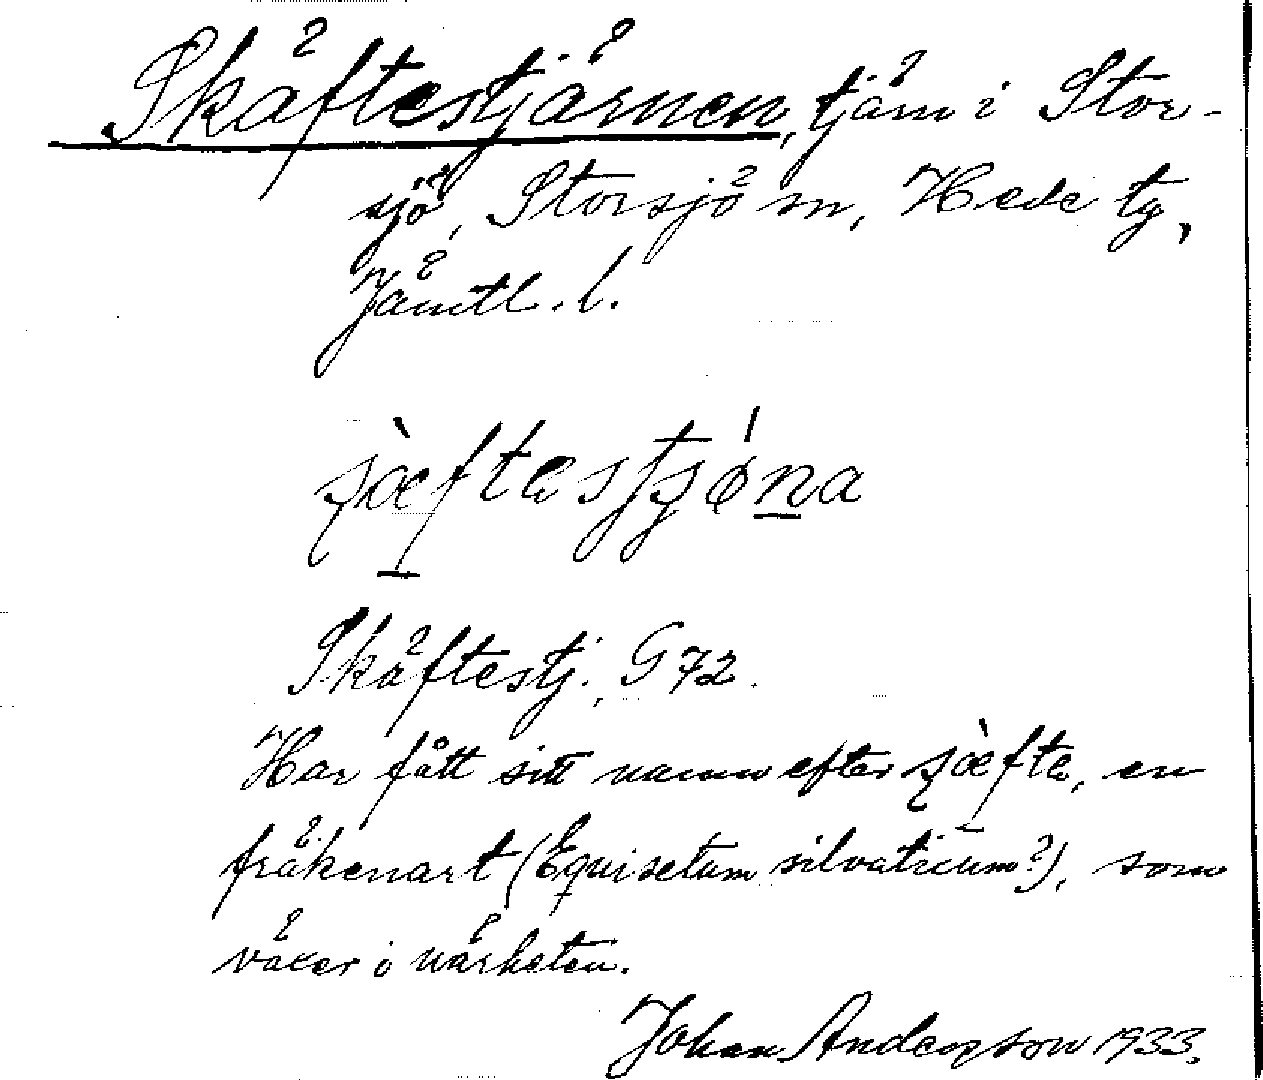 Skäftestjärnen, tjärn i Stor-
sjö, Storsjö sn, Hede tg,
Jämtl. l.
ʃæ̀ftestʃǿna
Skäftestj., G 72.
Har fått sitt namn efter ʃæ̀fte, en
fräkenart (Equisetum silvaticum?), som
växer i närheten.
Johan Anderson 1933.